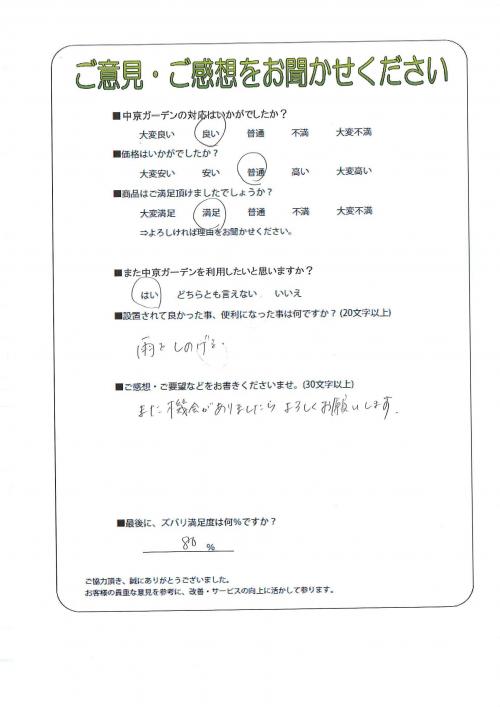 ご意見・ご感想をお聞かせください
■中京ガーデンの対応はいかがでしたか？
大変良い 良い 普通 不満 大変不満
■価格はいかがでしたか？
大変安い 安い 普通 高い 大変高い
■商品はご満足頂けましたでしょうか？
大変満足 満足 普通 不満 大変不満
⇒よろしければ理由をお聞かせください。
■また中京ガーデンを利用したいと思いますか？
はい どちらとも言えない いいえ
■設置されて良かった事、便利になった事は何ですか？(20文字以上)
雨をしのげる。
■ご感想・ご要望などをお書きくださいませ。(30文字以上)
また機会がありましたらよろしくお願いします。
■最後に、ズバリ満足度は何%ですか？
80 %
ご協力頂き、誠にありがとうございました。
お客様の貴重な意見を参考に、改善・サービスの向上に活かして参ります。